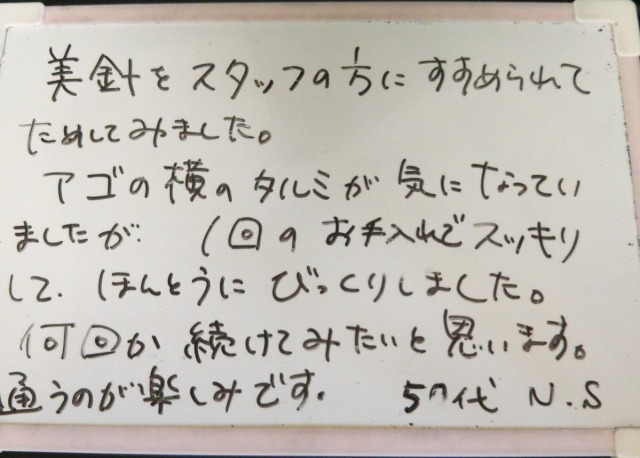 美針をスタッフの方にすすめられて
ためしてみました。
アゴの横のタルミが気になってい
ましたが 1回のお手入れでスッキリ
して、ほんとうにびっくりしました。
何回か続けてみたいと思います。
通うのが楽しみです。 50代 N.S